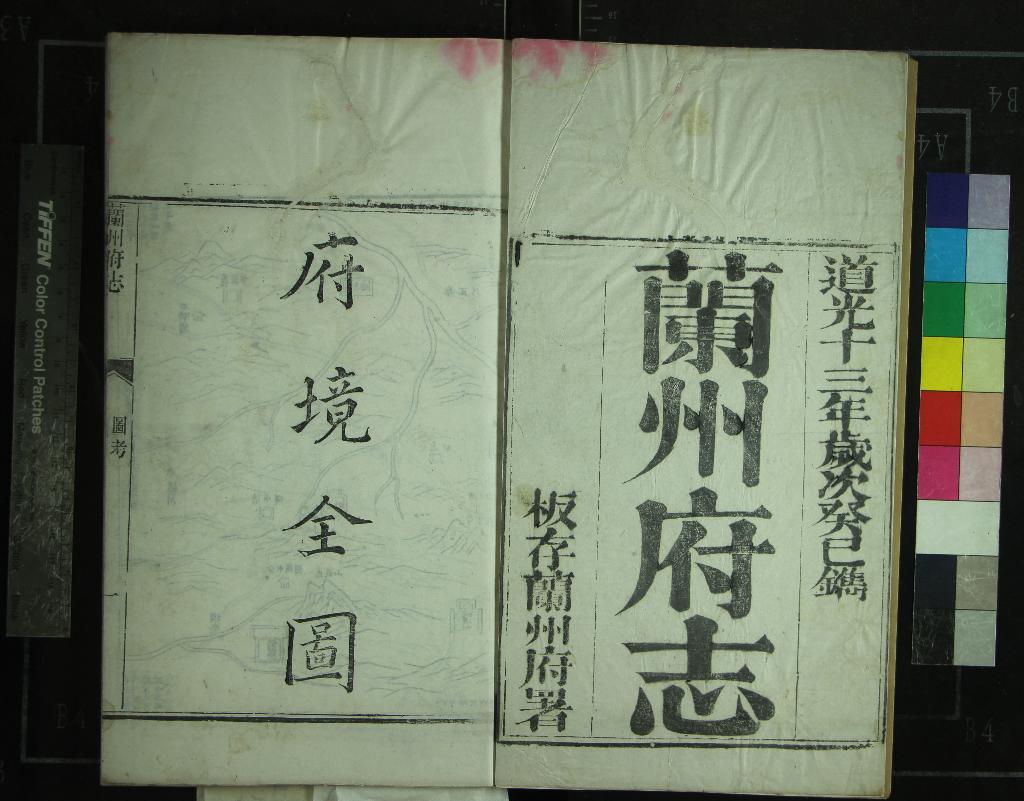 道光十三年歲次癸巳鐫
蘭州府志
板存蘭州府署
府境全圖
蘭州府志
圖考
一
TIFFEN Color Control Patches
A4
B4
B4